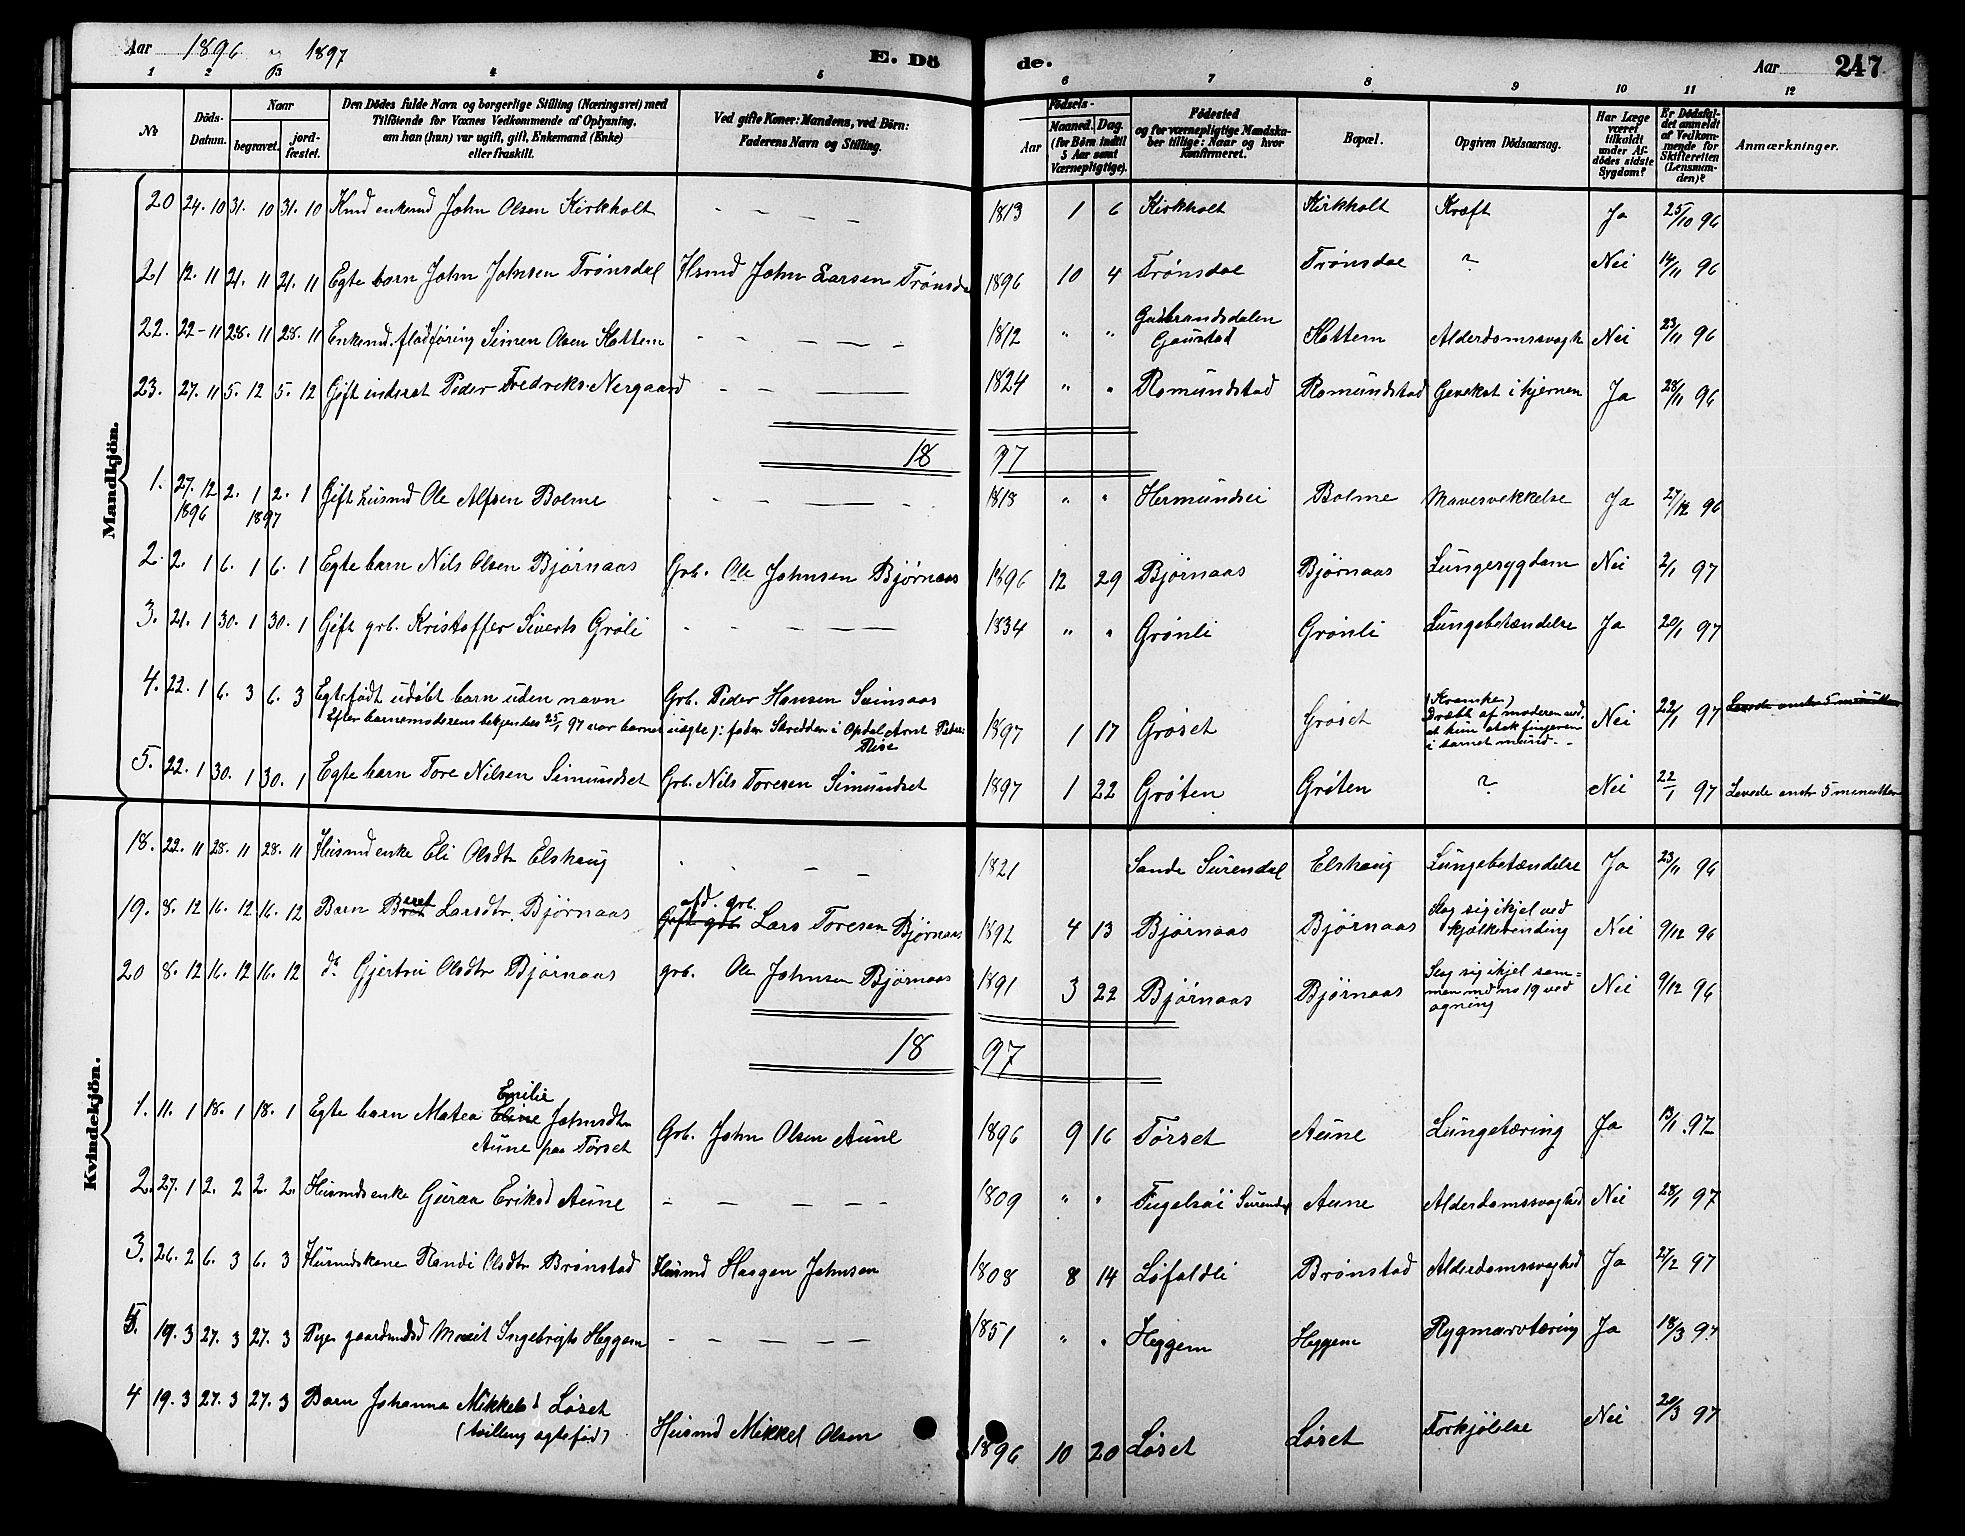 Aar 1896 " 1897 E. Dö de. Aar 247
1 2 3 4 5 6 7 8 9 10 11 12
No
Döds-Datum.
Naar
begravet.
jordfæstet.
Den Dödes fulde Navn og borgerlige Stilling (Næringsvei) med
Tilföiende for Voxnes Vedkommende af Oplysning,
om han (hun) var ugift, gift, Enkemand (Enke)
eller fraskilt.
Ved gifte Koner: Mandens, ved Börn:
Faderens Navn og Stilling.
Födsels-
Aar
Maaned. Dag.
(for Börn indtil
5 Aar samt
Værnepligtige).
Födested
og for værnepligtige Mandska-
ber tillige: Naar og hvor
konfirmeret.
Bopæl.
Opgiven Dödsaarsag.
Har Læge
været
tilkaldt
under Af-
dödes sidste
Sygdom?
Er Dödsfal-
det anmeldt
af Vedkom-
mende for
Skifteretten
(Lensman-
den)?
Anmærkninger.
Mandkjön.
20 24. 10 31. 10 31. 10 John Olsen Kirkholt - - - - - 1813 1 6 Kirkholt Kirkholt Kræft Ja 25/10 96
21 12. 11 21. 11 21. 11 Egte barn John Johnsen Trønsdal Husmd John Larsen Trønsda 1896 10 4 Trønsdal Trønsdal ? Nei 14/11 96
22. 22 - 11 28. 11 28. 11 Enkemd. flodføring Simen Olsen Kottem - - - - - 1812 " " Gudbrandsdalen
Gaustad Kottem Alderdomssvagh Nei 23/11 96
23. 27. 11 5. 12 5. 12 Gift inderst Peder Fredriks. Nergaard - - - 1824 " " Romundstad Romundstad Gevekst i hjernen Ja 28/11 96
18 97
1. 27. 12 2. 1 2. 1 Gift husmd Ole Alfsen Bolme - - - - - 1818 " " Hermundsei Bolme Mavesvekkelse Ja 27/12 96
1896 1897
2. 2. 1 6. 1 6. 1 Egte barn Nils Olsen Bjørnaas Grb. Ole Johnsen Bjørnaas 1896 12 29 Bjørnaas Bjørnaas Lungesygdom Nei 2/1 97
3. 21. 1 30. 1 30. 1 Gift grb. Kristoffer Siverts Grøli - - - - 1834 " " Grønli Grønli Lungebetændelse Ja 20/1 97
4. 22. 1 6. 3 6. 3 Egtefødt udøbt barn uden navn Grb. Peder Hansen 1897 1 17 Grøset Grøset (Krampe) Nei 22/1 97 Levede under 5 minutter
(Efter barnemoderens bekjendes 25/1 97 var barnet uægte): fader Skrædder i Opdal Arnt Peder. Rise
Dræbt af moderen ved,
at hun stak fingeren
i barnet mund. -
5. 22. 1 30. 1 30. 1 Egte barn Tore Nilsen Simundset Grb. Nils Toresen Simundset 1897 1 22 Grøten Grøten ? Nei 22/1 97 Levede under 5 minutter
Kvindekjön.
18. 22. 11 28. 11 28. 11 Husmd enke Eli Olsdtr Elshaug - - - - 1821 Sande Surendal Elshaug Lungebetændelse Ja 23/11 96
19. 8. 12 16. 12 16. 12 Barn Beret Larsdtr. Bjørnaas afd. grb.
Gift grb. Lars Toresen Bjørnaas 1892 4 13 Bjørnaas Bjørnaas Slog sig ihjel ved
kjælkevending Nei 9/12 96
20 8. 12 16. 12 16. 12 do Gjertru Olsdtr Bjørnaas grb. Ole Johnsen Bjørnaas 1891 3 22 Bjørnaas Bjørnaas Slog sig ihjel sam=
men md no 19 ved
agning Nei 9/12 96
18 97
1. 11. 1 18. 1 18. 1 Egte barn Matea Emilie Eline Johnsdtr
Aune paa Tørset Grb. John Olsen Aune 1896 9 16 Tørset Aune Lungetæring Ja 13/1 97
2. 27. 1 2. 2 2. 2. Husmds enke Guraa Eriksd Aune - - - - - 1809 " " Surendal Aune Alderdomssvaghed Nei 28/1 97
3. 26. 2 6. 3 6. 3 Husmdskone Randi Olsdtr Brønstad Husmd Haagen Johnsen 1808 8 14 Løfaldli Brønstad Alderdomssvaghed Ja 27/2 97
5. 19. 3 27. 3 27. 3 Pige gaardmdsd Marit Ingebrigts Heggem - - - - - 1851 " " Heggem Heggem Rygmarvtæring Ja 18/3 97
4 19. 3 27. 3 27. 3 Barn Johanna Mikkelsd Løset
(tvilling egtefød) Husmd Mikkel Olsen 1896 10 20 Løset Løset Forkjølelse Nei 20/3 97